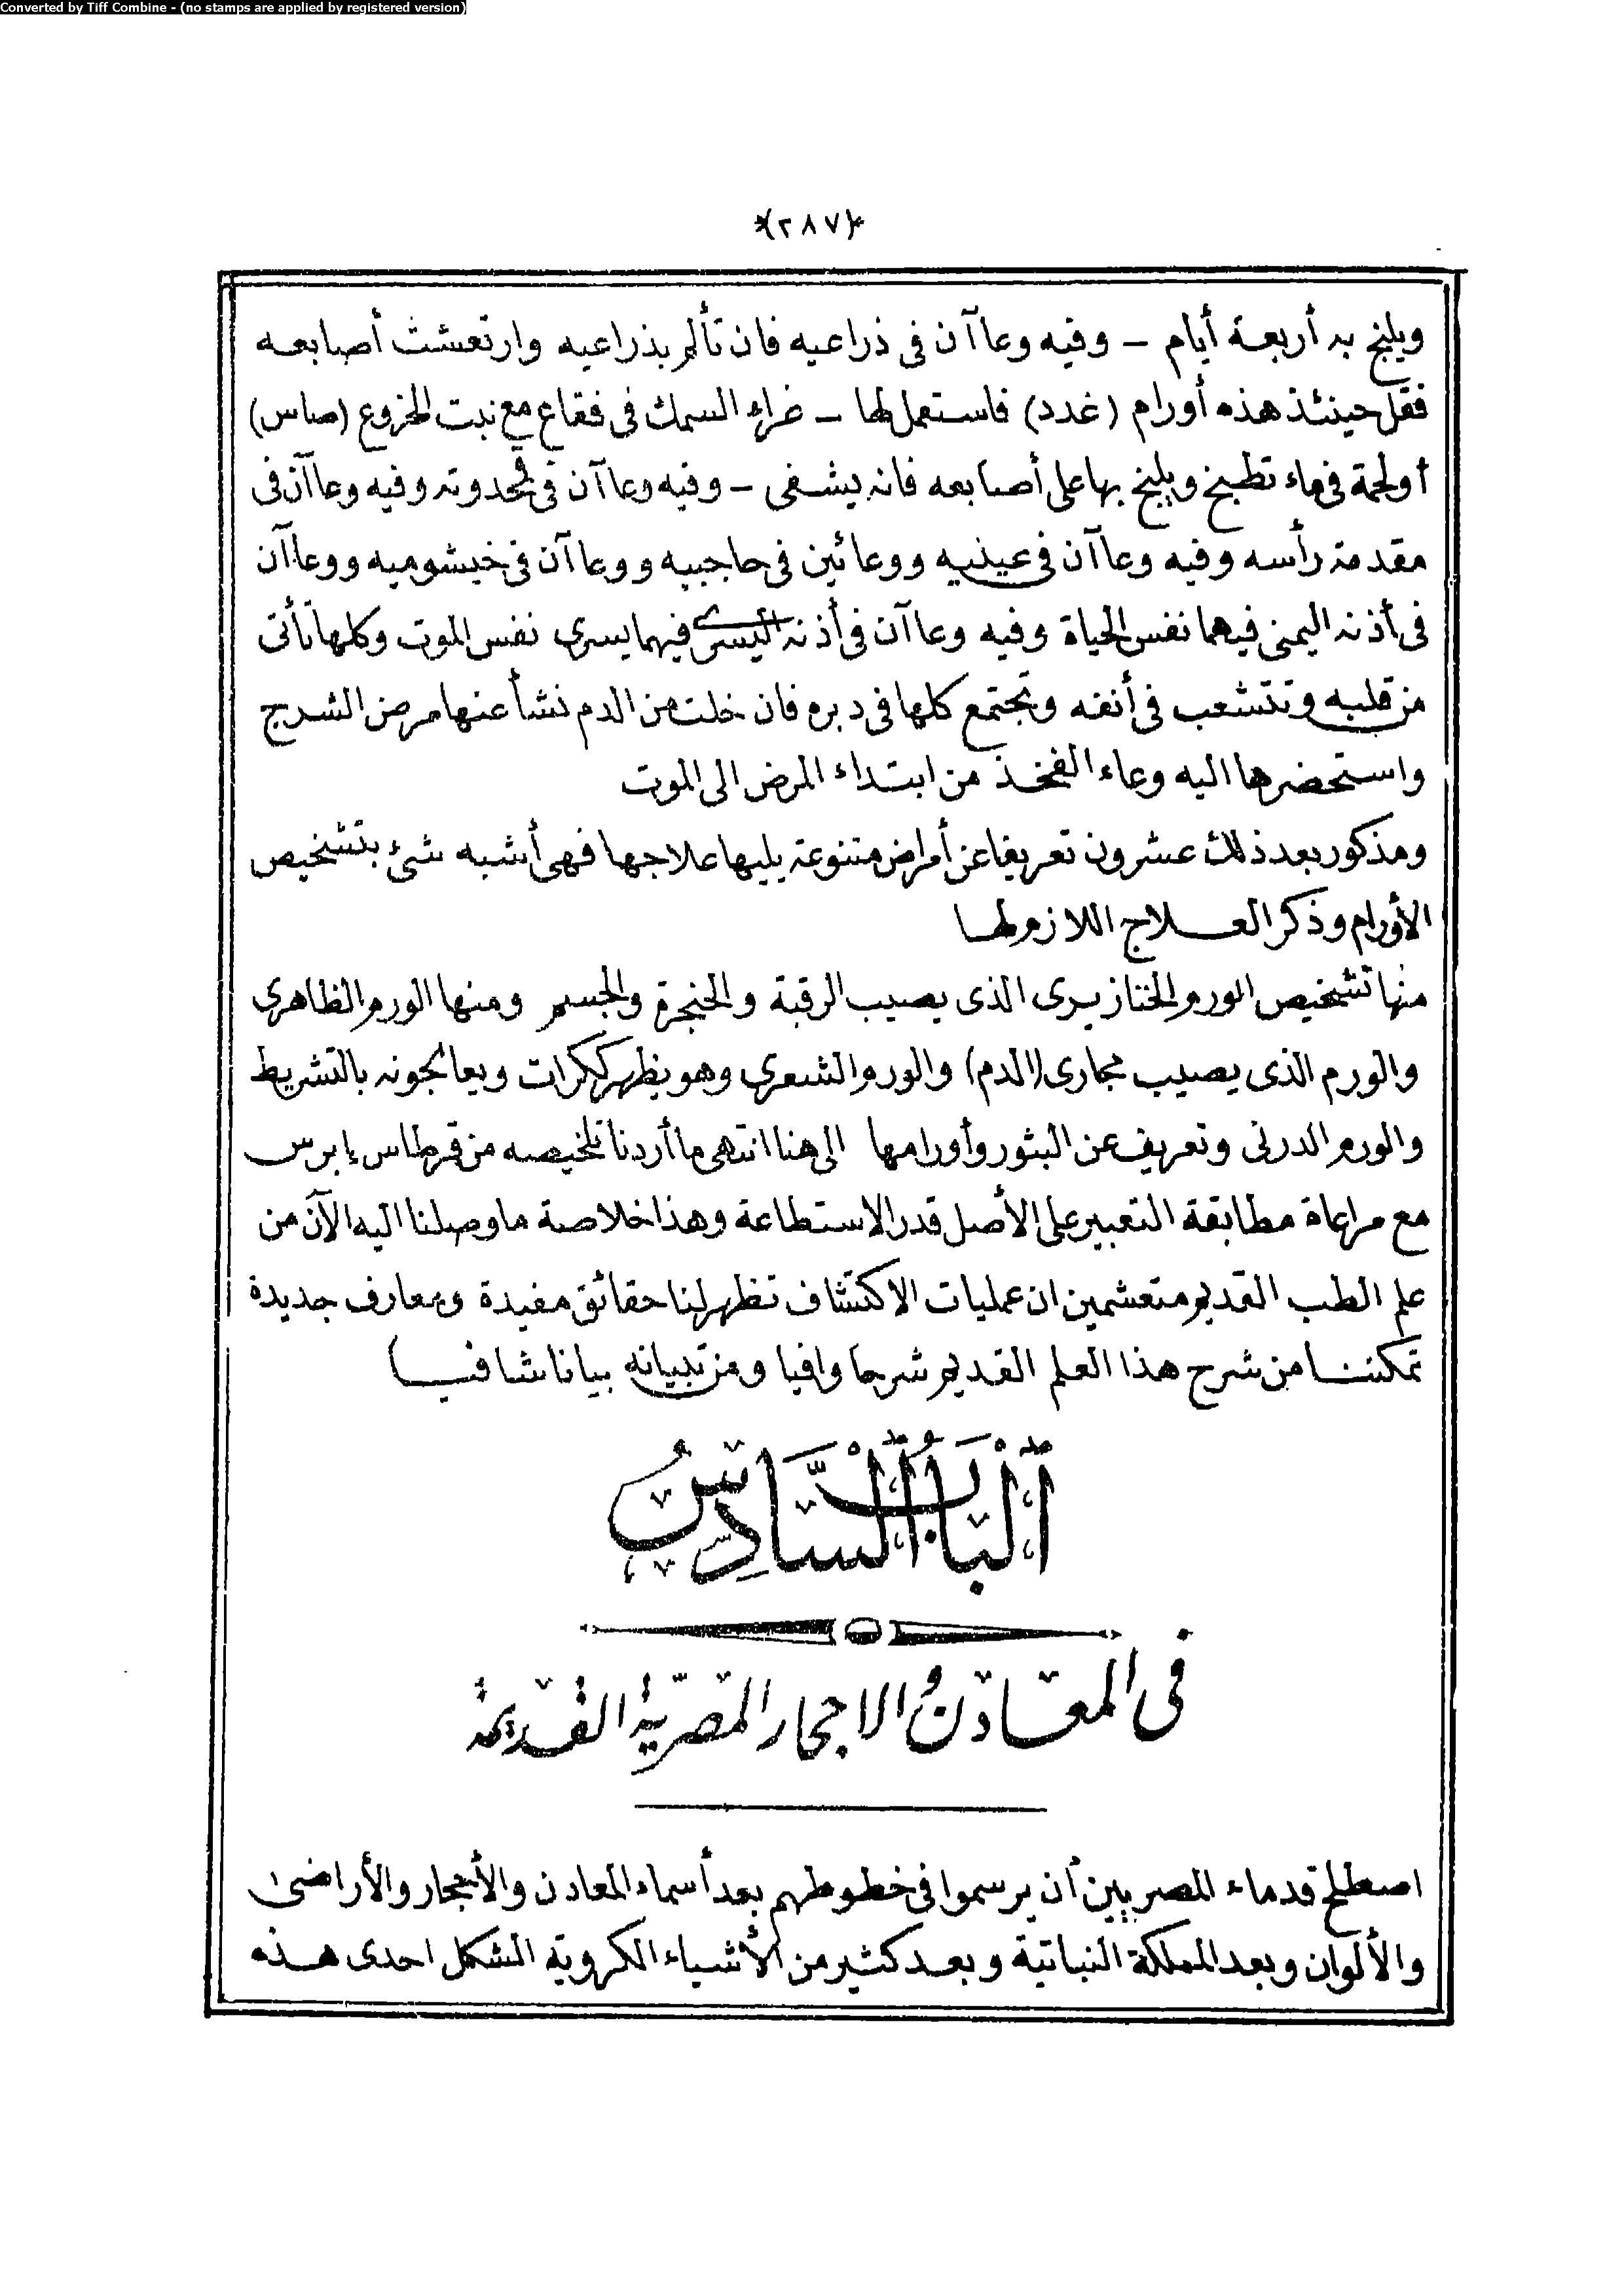 Converted by Tiff Combine - (no stamps are applied by registered version)
(٢٨٧)
ويلبخ به أربعة أيام – وفيه وعاآن في ذراعيه فان تألم بذراعيه وارتعشت أصابعه
فقل حينئذ هذه أورام (غدد) فاستعمل لها – غراء السمك في فقاع مع نبت الخروع (صاس)
أو لحمة في ماء تطبخ ويلبخ بها على أصابعه فانه يشفى – وفيه وعاآن في قمحدوته وفيه وعاآن في
مقدمة رأسه وفيه وعاآن في عينيه ووعائين في حاجبيه ووعاآن في خيشوميه ووعاآن
في أذنه اليمنى فيهما نفس الحياة وفيه وعاآن في أذنه اليسرى فيهما يسرى نفس الموت وكلها تأتى
من قلبه وتتشعب في أنفه وتجتمع كلها في دبره فان خلت من الدم نشأ عنها مرض الشرج
واستحضرها اليه وعاء الفخذ من ابتداء المرض الى الموت
ومذكور بعد ذلك عشرون تعريفا عن أمراض متنوعة يليها علاجها فهى أشبه شئ بتشخيص
الأورام وذكر العلاج اللازم لها
منها تشخيص الورم الخنازيرى الذى يصيب الرقبة والحنجرة والجسم ومنها الورم الظاهرى
والورم الذى يصيب مجارى (الدم) والورم الشعرى وهو يظهر ككرات ويعالجونه بالتشريط
والورم الدرنى وتعريف عن البثور وأورامها الى هنا انتهى ما أردنا تلخيصه من قرطاس إبرس
مع مراعاة مطابقة التعبير على الأصل قدر الاستطاعة وهذا خلاصة ما وصلنا اليه الآن من
علم الطب القديم متعشمين ان عمليات الاكتشاف تظهر لنا حقائق مفيدة ومعارف جديدة
تمكننا من شرح هذا العلم القديم شرحا وافيا ومن تبيانه بيانا شافيا
اَلْبَابُ السَّادِسُ
في المعادن والاحجار المصرية القديمة
اصطلح قدماء المصريين أن يرسموا في خطوطهم بعد أسماء المعادن والأحجار والأراضى
والألوان وبعد المملكة النباتية وبعد كثير من الأشياء الكروية الشكل احدى هذه